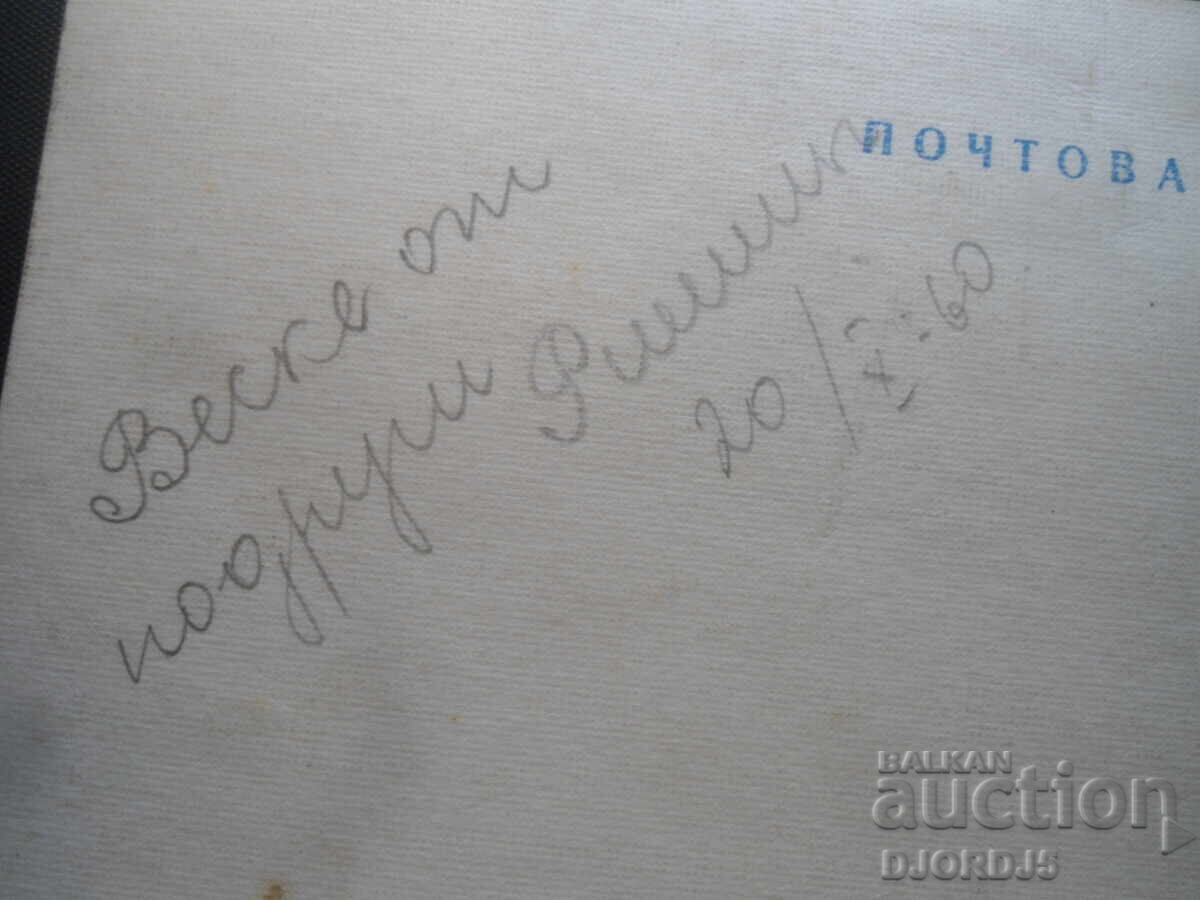 ПОЧТОВА
Веске от
подруги
20/X-60
BALKAN
auction
DJORDJ5